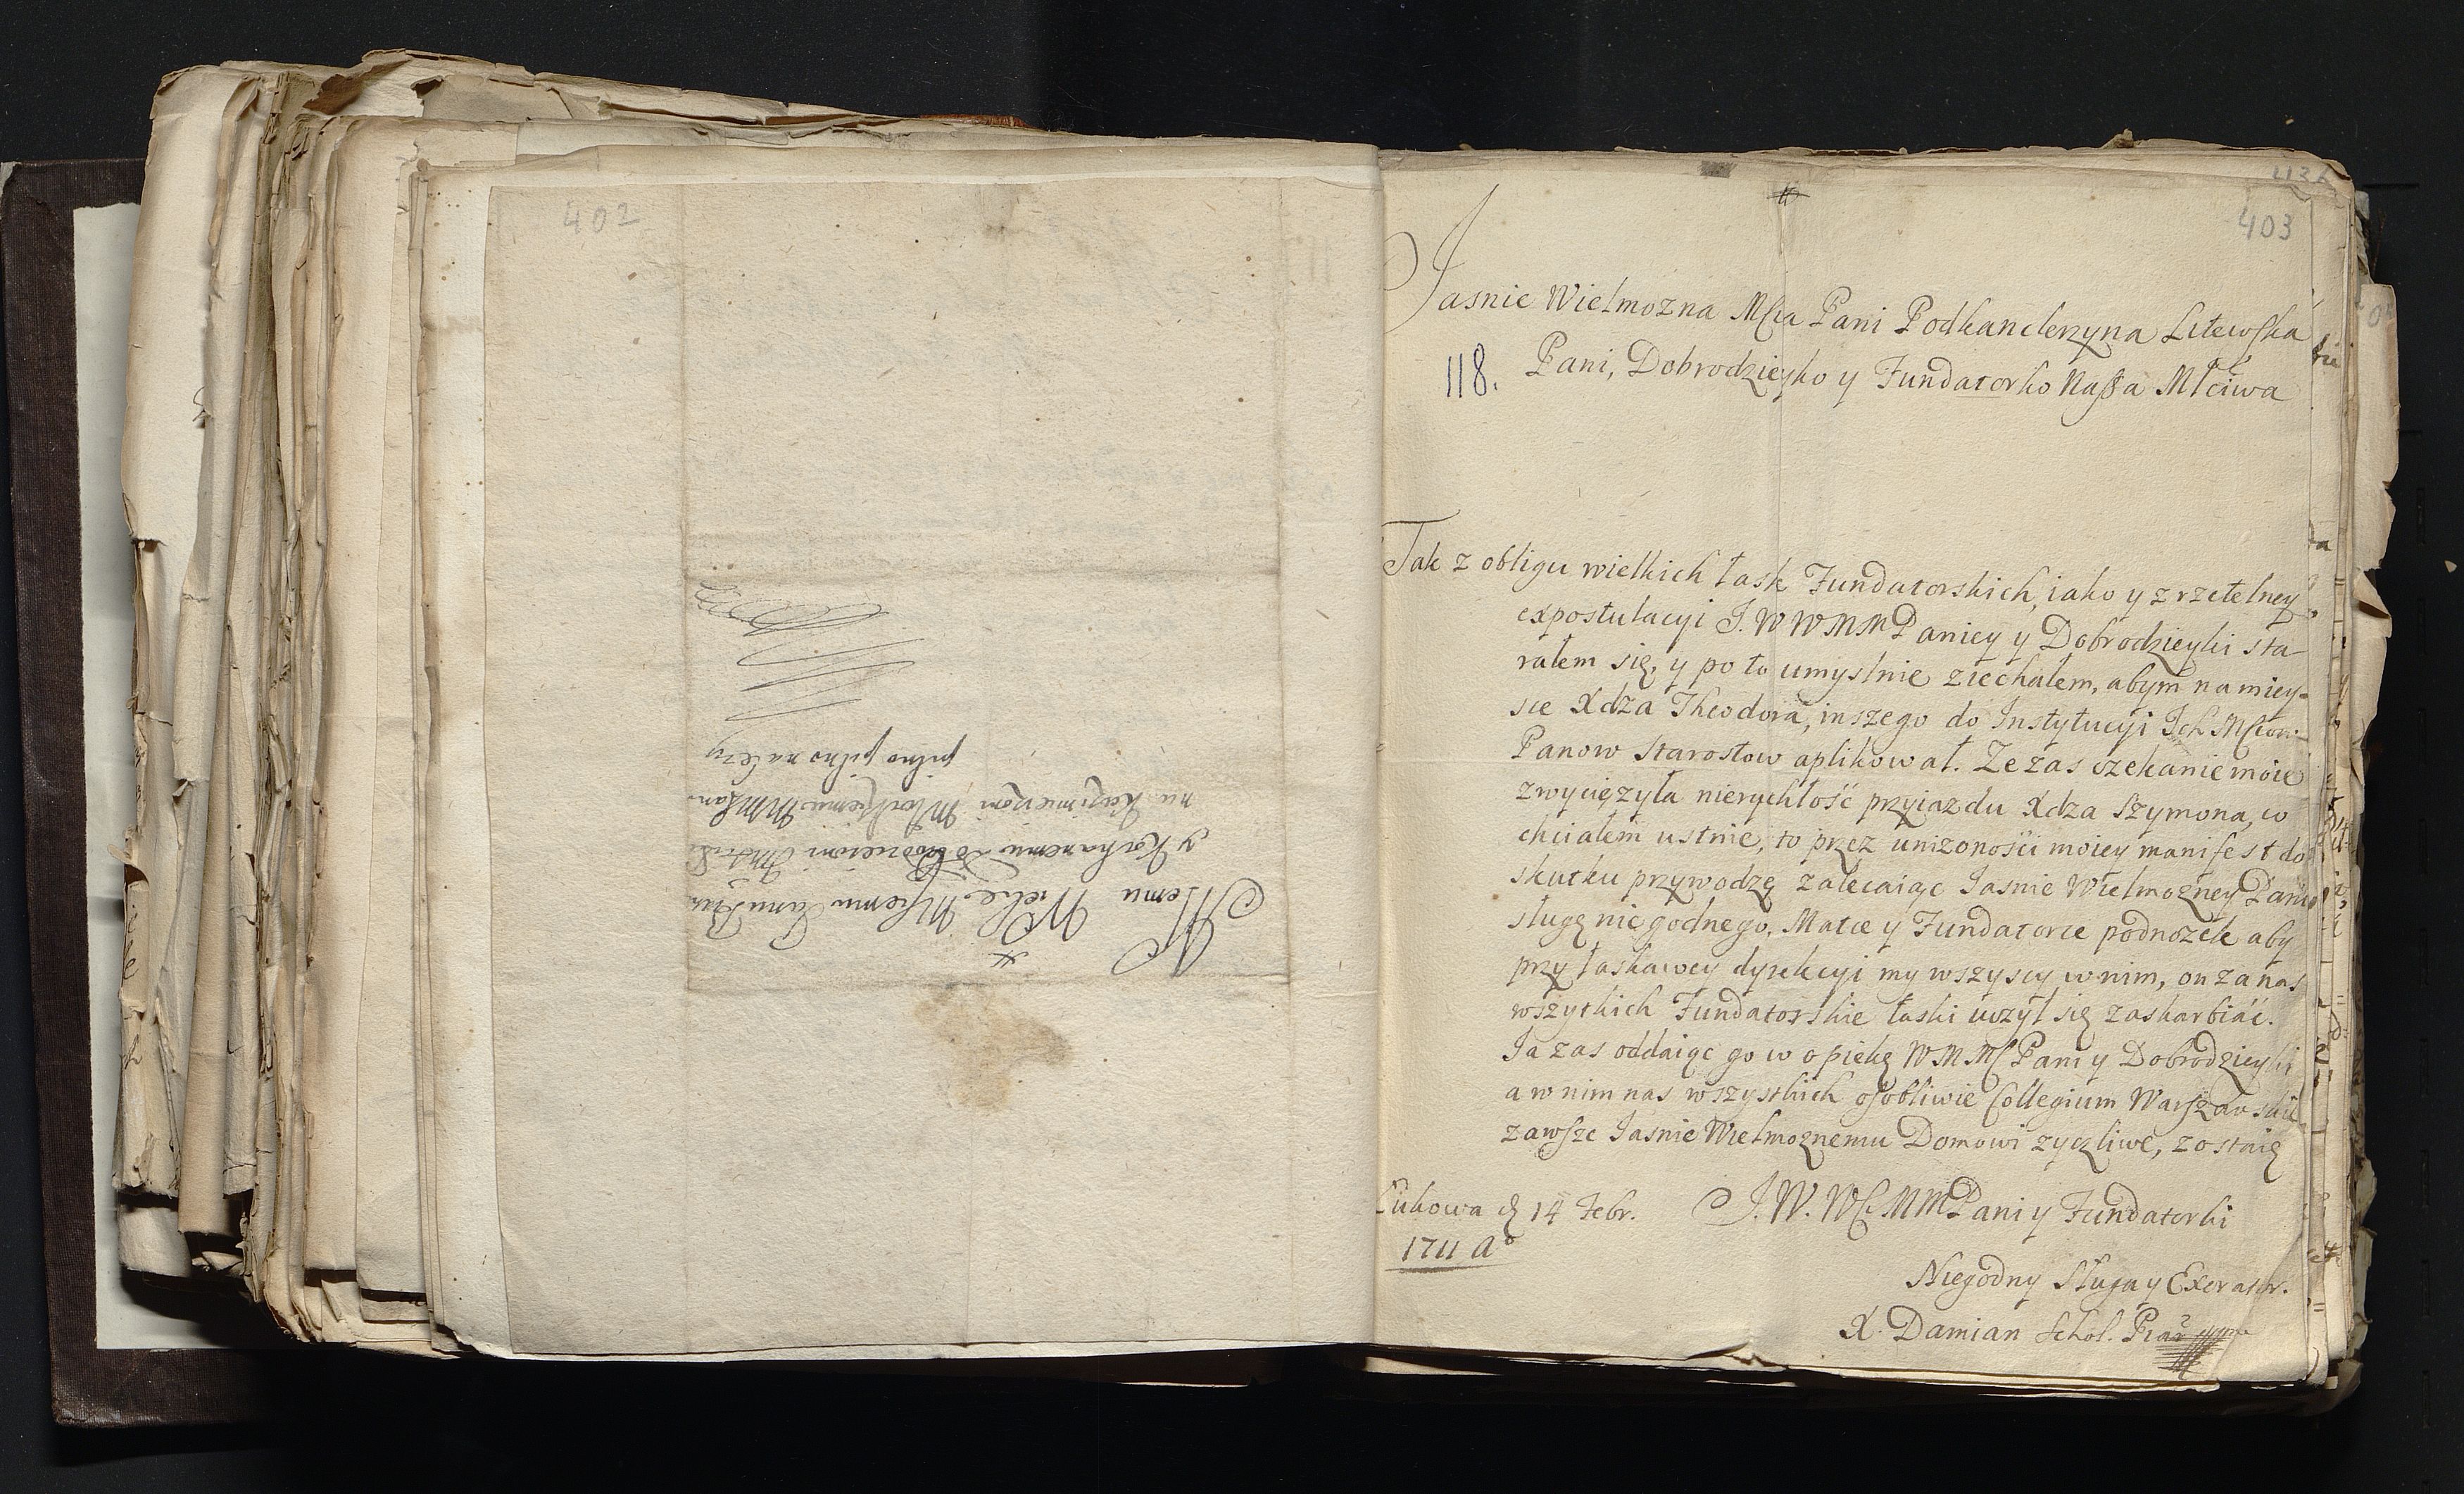 402
Memu Wielce Mscemu Panu Bratu
y Kochanemu Dobrodzieiowi
nu Kazimierzowi
pilno pilno nalezy
403
Jasnie Wielmozna Mscia Pani Podkanclerzyna Litewska
118. Pani, Dobrodzieyko y Fundatorko Nassa Młciwa
Tak z obligu wielkich łask Fundatorskich, iako y z rzetelney
expostulacyi J. W W M M Paniey y Dobrodzieyki sta-
rałem się, y po to umyslnie ziechałem, abym na miey-
sce Xdza Theodora, inszego do Instytucyi Ich Mściow
Panow Starostow aplikował. Ze zas czekanie moie
zwyciężyła nierychłość przyiazdu Xdza Szymona, co
chciałem ustnie, to przez unizonosći moiey manifest do
skutku przywodzę zalecaiąc Jasnie Wielmozney Pani
sługę niegodnego, Matce y Fundatorce podnozek aby
przy łaskawey dyrekcyi my wszyscy w nim, on za nas
wszytkich Fundatorskie łaski uczył się zaskarbiać.
Ja zas oddaiąc go w opiekę W M M Pani y Dobrodzieyki
a w nim nas wszystkich osobliwie Collegium Warszawskie
zawsze Jasnie Wielmoznemu Domowi zyczliwe, zostaię
Łukowa d 14 Febr. J. W. W M M Pani y Fundatorki
1711 Aº
Niegodny Sługa y Exorator.
X. Damian Schol. Piar